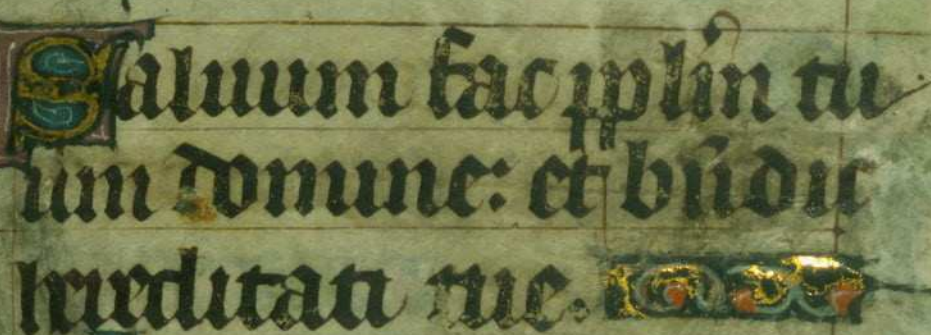 Saluum fac pplm̄ tu
um domine: et bn̄dic
hereditati tue.